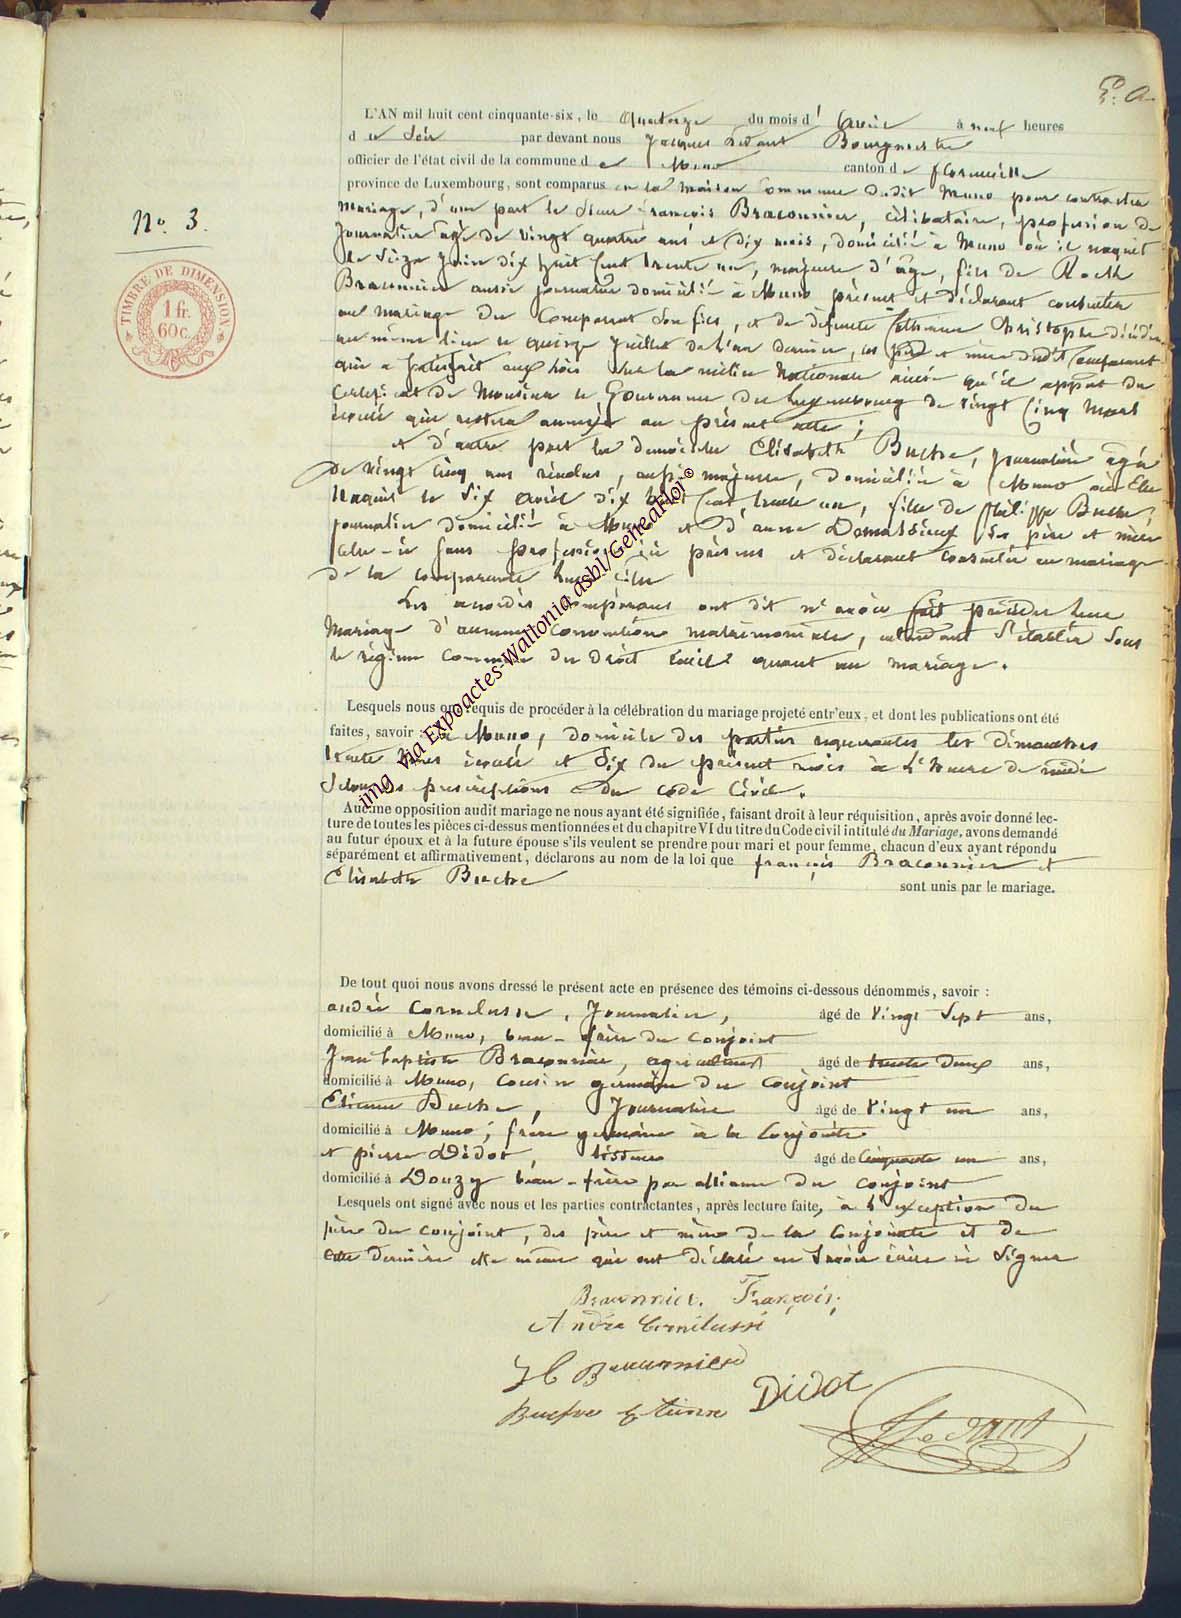 E. A.
L'AN mil huit cent cinquante-six, le quatorze du mois d'avril à neuf heures
du soir par devant nous Jacques Ledant Bourgmestre
officier de l'état civil de la commune de Muno canton de florenville
province de Luxembourg, sont comparus en la maison Commune dudit Muno pour contracter
mariage, d'une part le Sieur françois Braconnier, célibataire, profession de
Journalier agé de vingt quatre ans et dix mois, domicilié à Muno où il naquit
le Seize Juin dix huit Cent trente un, majeur d'âge, fils de Roch
Braconnier aussi journalier domicilié à Muno présent et déclarant consentir
au mariage du Comparant son fils, et de défunte Catherine Christophe décédée
au même lieu le quinze Juillet de l'an dernier, les père et mère dudit Comparant
qui a satisfait aux lois sur la milice Nationale ainsi qu'il appert du
Certificat de Monsieur le Gouverneur du Luxembourg de vingt Cinq Mars
écoulé qui restera annexé au présent acte;
et d'autre part la demoiselle Elisabeth Buche, journalière agée
de vingt cinq ans révolus, aussi majeure, domiciliée à Muno où Elle
Naquit le Six avril dix huit Cent trente un, fille de philippe Buche,
journalier domicilié à Muno et d'anne Demasseux Ses père et mère
celle-ci sans profession ici présens et déclarant consentir au mariage
de la comparante leur fille
Les susdits comparans ont dit n'avoir fait précéder leur
Mariage d'aucune Convention matrimoniale, entendant S'établir Sous
le régime commun du Droit Civil quant au mariage.
Lesquels nous ont requis de procéder à la célébration du mariage projeté entr'eux, et dont les publications ont été
faites, savoir : à Muno, domicile des parties requérantes les Dimanches
trente Mars écoulé et Six du présent mois à l'heure de midi
Selon les prescriptions du Code Civil.
Aucune opposition audit mariage ne nous ayant été signifiée, faisant droit à leur réquisition, après avoir donné lec-
ture de toutes les pièces ci-dessus mentionnées et du chapitre VI du titre du Code civil intitulé du Mariage, avons demandé
au futur époux et à la future épouse s'ils veulent se prendre pour mari et pour femme, chacun d'eux ayant répondu
séparément et affirmativement, déclarons au nom de la loi que françois Braconnier et
Elisabeth Buche sont unis par le mariage.
De tout quoi nous avons dressé le présent acte en présence des témoins ci-dessous dénommés, savoir :
andré Cornelusse, Journalier, âgé de Vingt Sept ans,
domicilié à Muno, beau-frère du Conjoint
Jean baptiste Braconnier, agriculteur âgé de trente Deux ans,
domicilié à Muno, Cousin germain du Conjoint
Etienne Buche, Journalier âgé de Vingt un ans,
domicilié à Muno, frère germain à la Conjointe
et pierre Didot, tisseur âgé de Cinquante un ans,
domicilié à Douzy beau-frère par alliance du conjoint
Lesquels ont signé avec nous et les parties contractantes, après lecture faite, à l'exception du
père du conjoint, des père et mère de la Conjointe et de
cette dernière elle même qui ont déclaré ne Savoir écrire ni Signer
Braconnier. François.
André Cornelusse
J B Braconnier
Didot
Buche Etienne
Ledant
N° 3.
TIMBRE DE DIMENSION
1 fr.
60 c.
img via Expoactes-Wallonia asbl/GeneaFlor©